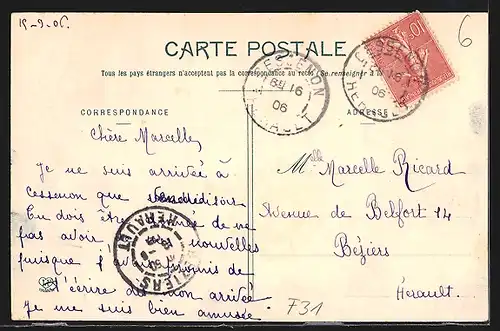 15-9-06.
6
CARTE POSTALE
Tous les pays étrangers n'acceptent pas la correspondance au recto (Se renseigner à la
CESSENON
16
06
HERAULT
CESSENON
16
06
HERAULT
10
CORRESPONDANCE
ADRESSE
Chère Marcelle
Je ne suis arrivée à
cessenon que Vendredi soir
Tu dois être de ne
pas avoir nouvelles
puisque j'avais promis de
t'écrire mon arrivée
Je me suis bien amusée
BEZIERS
HERAULT
Mlle Marcelle Ricard
Avenue de Belfort 14
Béziers
Hérault.
F31